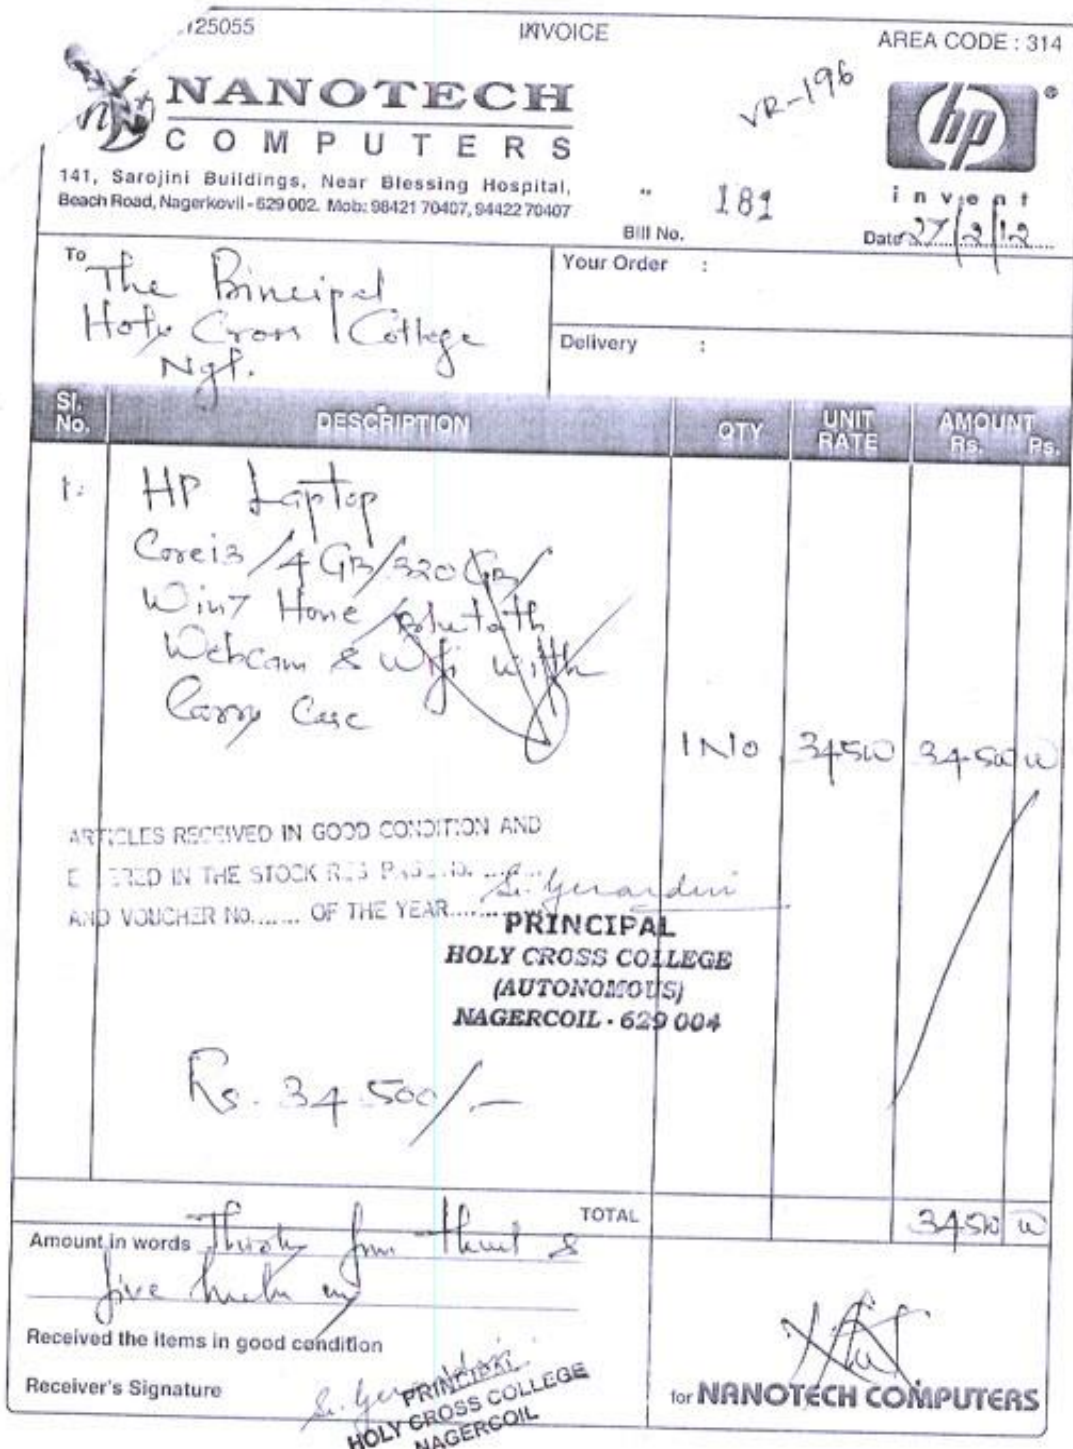 125055 INVOICE AREA CODE : 314
NANOTECH
COMPUTERS
VR-196
hp
®
invent
141, Sarojini Buildings, Near Blessing Hospital,
Beach Road, Nagerkovil - 629 002. Mob: 98421 70407, 94422 70407
Bill No. 181
Date 27/2/12
To
The Principal
Holy Cross College
Ngl.
Your Order :
Delivery :
Sl. No. DESCRIPTION QTY UNIT RATE AMOUNT Rs. Ps.
1. HP Laptop
Corei3/4 GB/320 GB/
Win7 Home/Blutoth
Webcam & Wifi with
Carry Case
1 No 34500 34500 00
ARTICLES RECEIVED IN GOOD CONDITION AND
E ERED IN THE STOCK REG PAGE NO. ......
AND VOUCHER No....... OF THE YEAR.......
Sr. Gerardini
PRINCIPAL
HOLY CROSS COLLEGE
(AUTONOMOUS)
NAGERCOIL - 629 004
Rs. 34500/-
TOTAL 34500 00
Amount in words Thirty four &
five
Received the items in good condition
Receiver's Signature
PRINCIPAL
HOLY CROSS COLLEGE
NAGERCOIL
for NANOTECH COMPUTERS